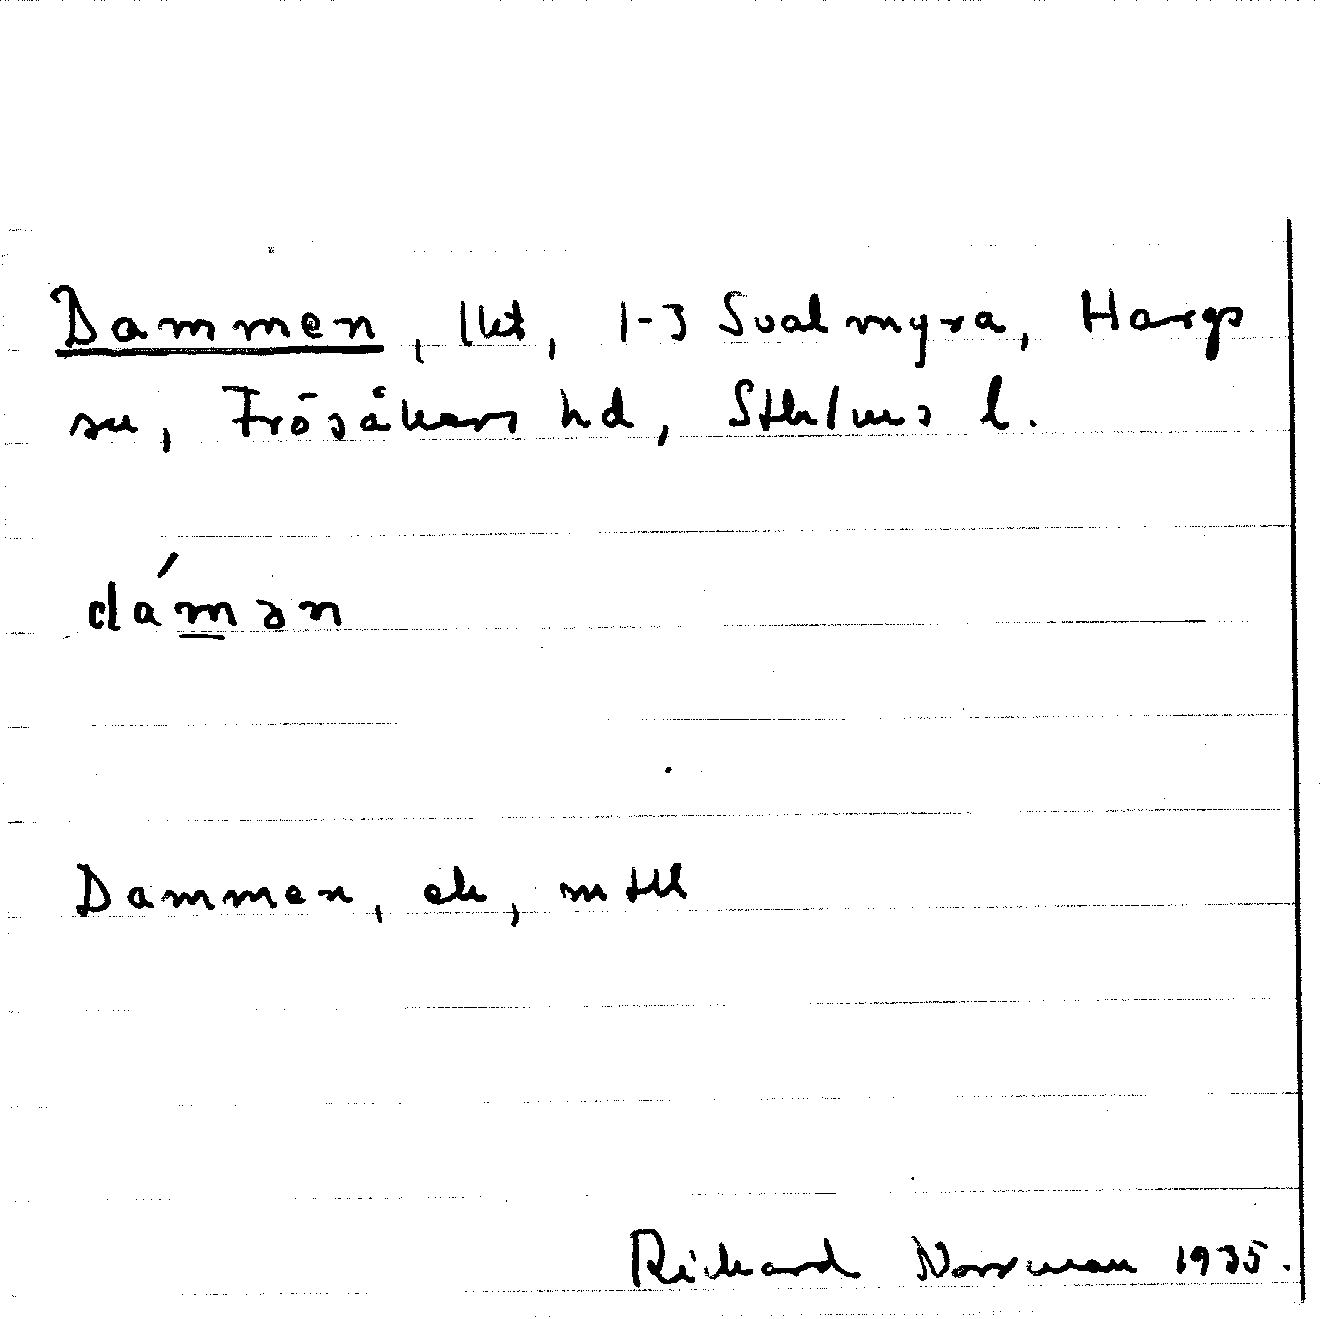 Dammen, lht, 1-3 Svalmyra, Hargs
sn, Frösåkers hd, Sthlms l.
dám̲ən
Dammen, ek, mtll
Rickard Norrman 1935.